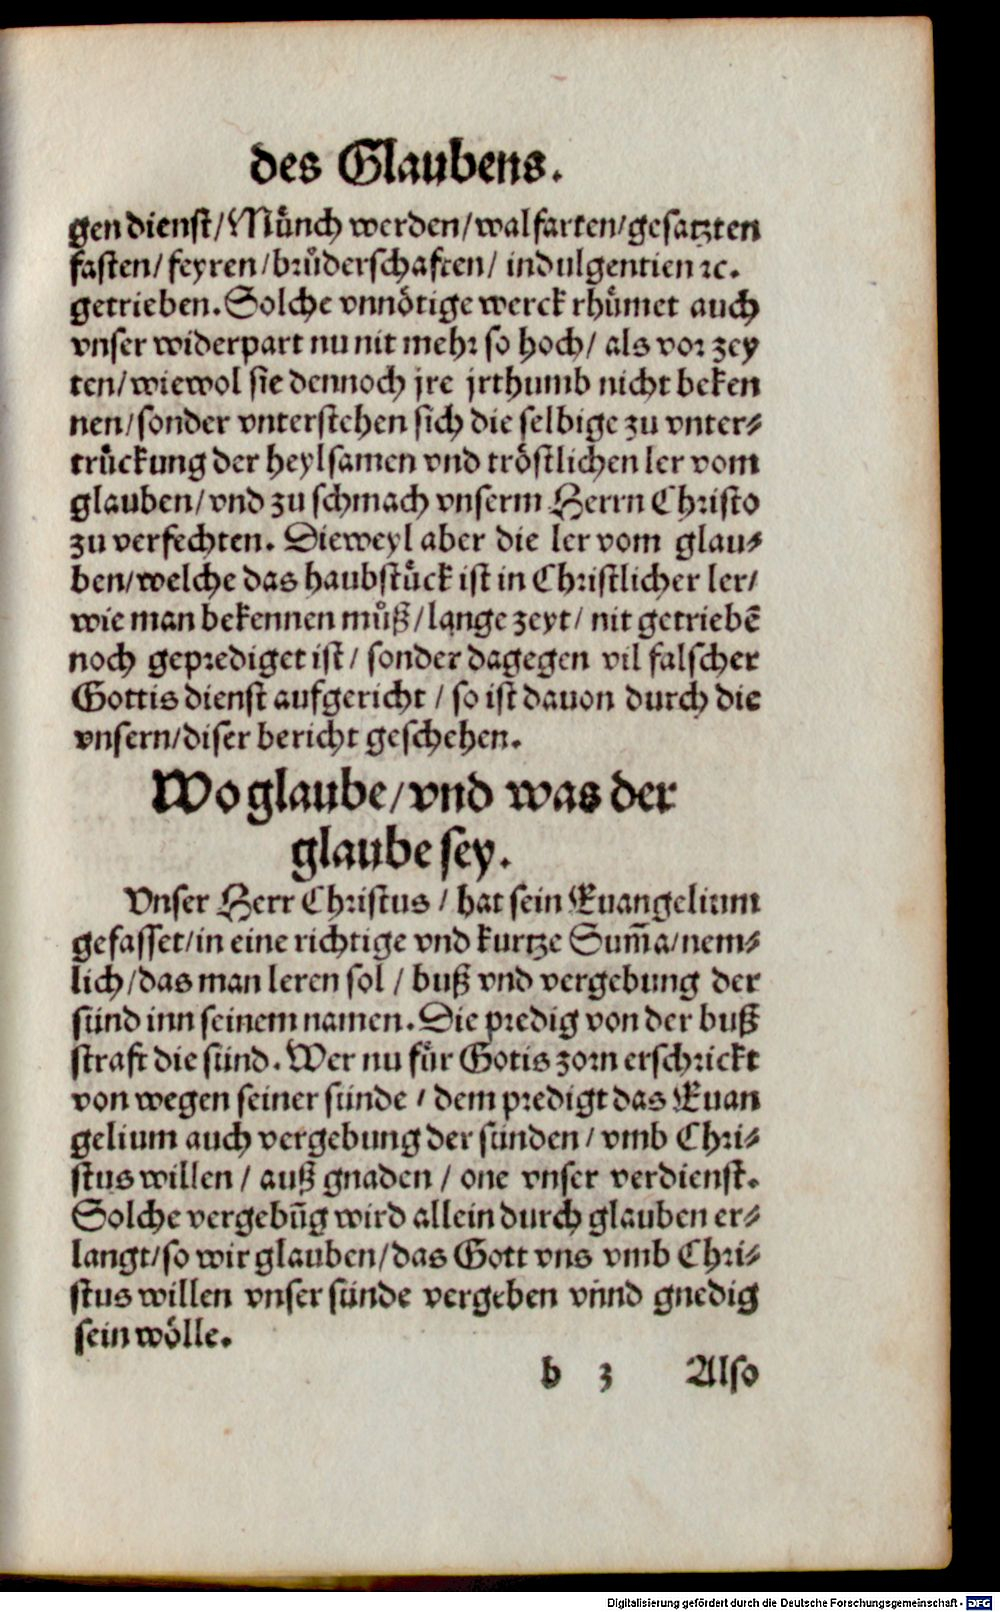 des Glaubens.
gen dienst/Můnch werden/walfarten/gesatzten
fasten/feyren/brůderschafften/ indulgentien ꝛc.
getrieben. Solche vnnötige werck rhůmet auch
vnser widerpart nu nit mehr so hoch/ als vor zey
ten/wiewol sie dennoch jre jrthumb nicht beken
nen/sonder vnterstehen sich die selbige zu vnter⸗
trůckung der heylsamen vnd tröstlichen ler vom
glauben/vnd zu schmach vnserm Herrn Christo
zu verfechten. Dieweyl aber die ler vom glau⸗
ben/welche das haubstůck ist in Christlicher ler/
wie man bekennen můß/lange zeyt/ nit getriebē
noch geprediget ist/ sonder dagegen vil falscher
Gottis dienst aufgericht / so ist dauon durch die
vnsern/diser bericht geschehen.
Wo glaube/vnd was der
glaube sey.
Vnser Herr Christus / hat sein Euangelium
gefasset/in eine richtige vnd kurtze Sum̄a/nem⸗
lich/das man leren sol / buß vnd vergebung der
sünd inn seinem namen. Die predig von der buß
straft die sünd. Wer nu fůr Gotis zorn erschrickt
von wegen seiner sünde / dem predigt das Euan
gelium auch vergebung der sünden/ vmb Chri⸗
stus willen / auß gnaden / one vnser verdienst.
Solche vergebūg wird allein durch glauben er⸗
langt/so wir glauben/das Gott vns vmb Chri⸗
stus willen vnser sünde vergeben vnnd gnedig
sein wölle.
b 3 Also
Digitalisierung gefördert durch die Deutsche Forschungsgemeinschaft - DFG